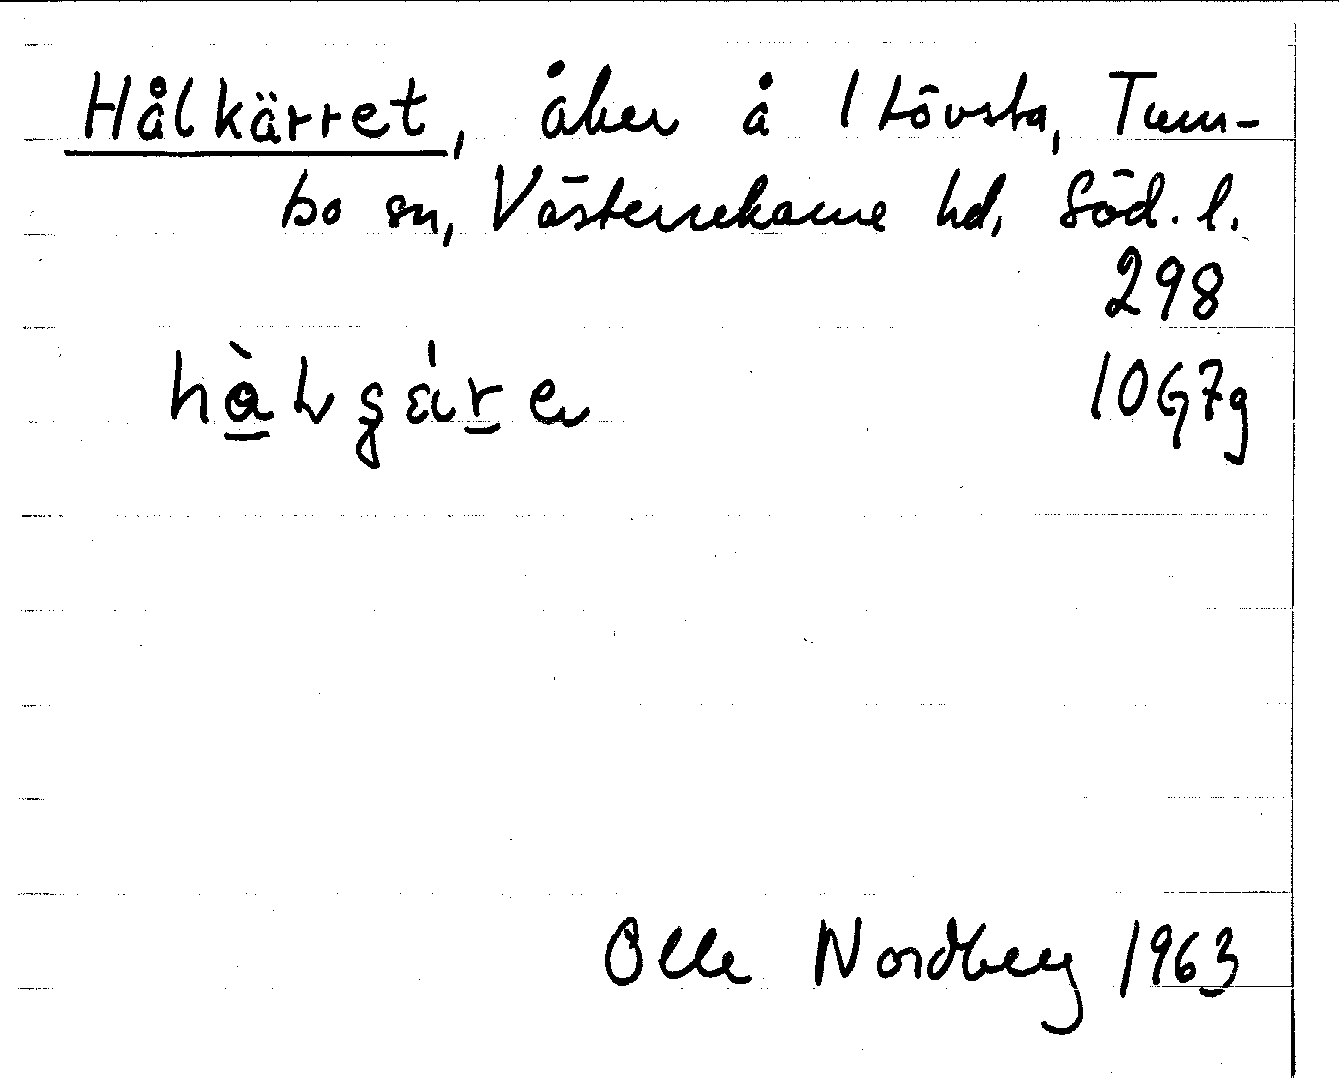 Hålkärret, åker å 1 Lövsta, Tum-
bo sn, Västerrekarne hd, Söd. l.
298
10G7g
Olle Nordberg 1963